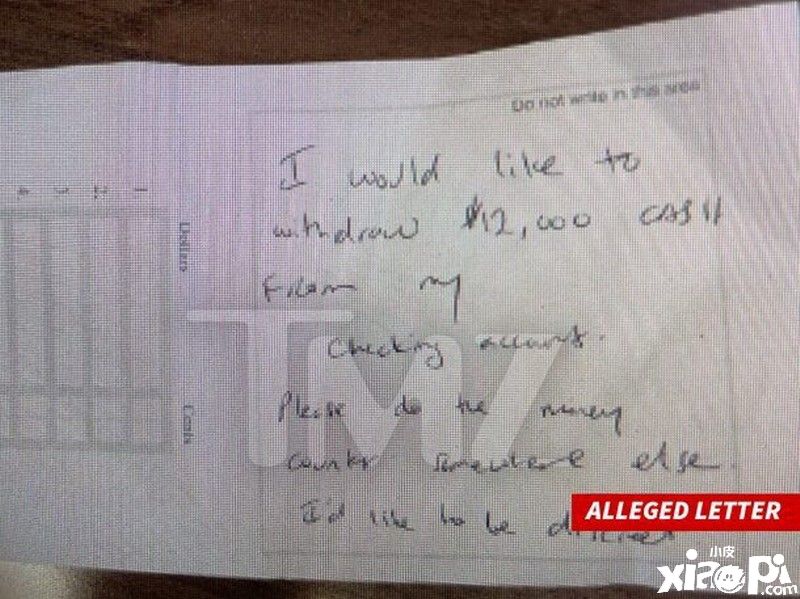 Do not write in this area
I would like to
withdraw $12,000 CASH
From my
Checking account.
Please do the money
counts somewhere else.
I'd like to be
Dollars
Cents
1
2
3
4
TMZ
ALLEGED LETTER
小皮
xiaopi
.com